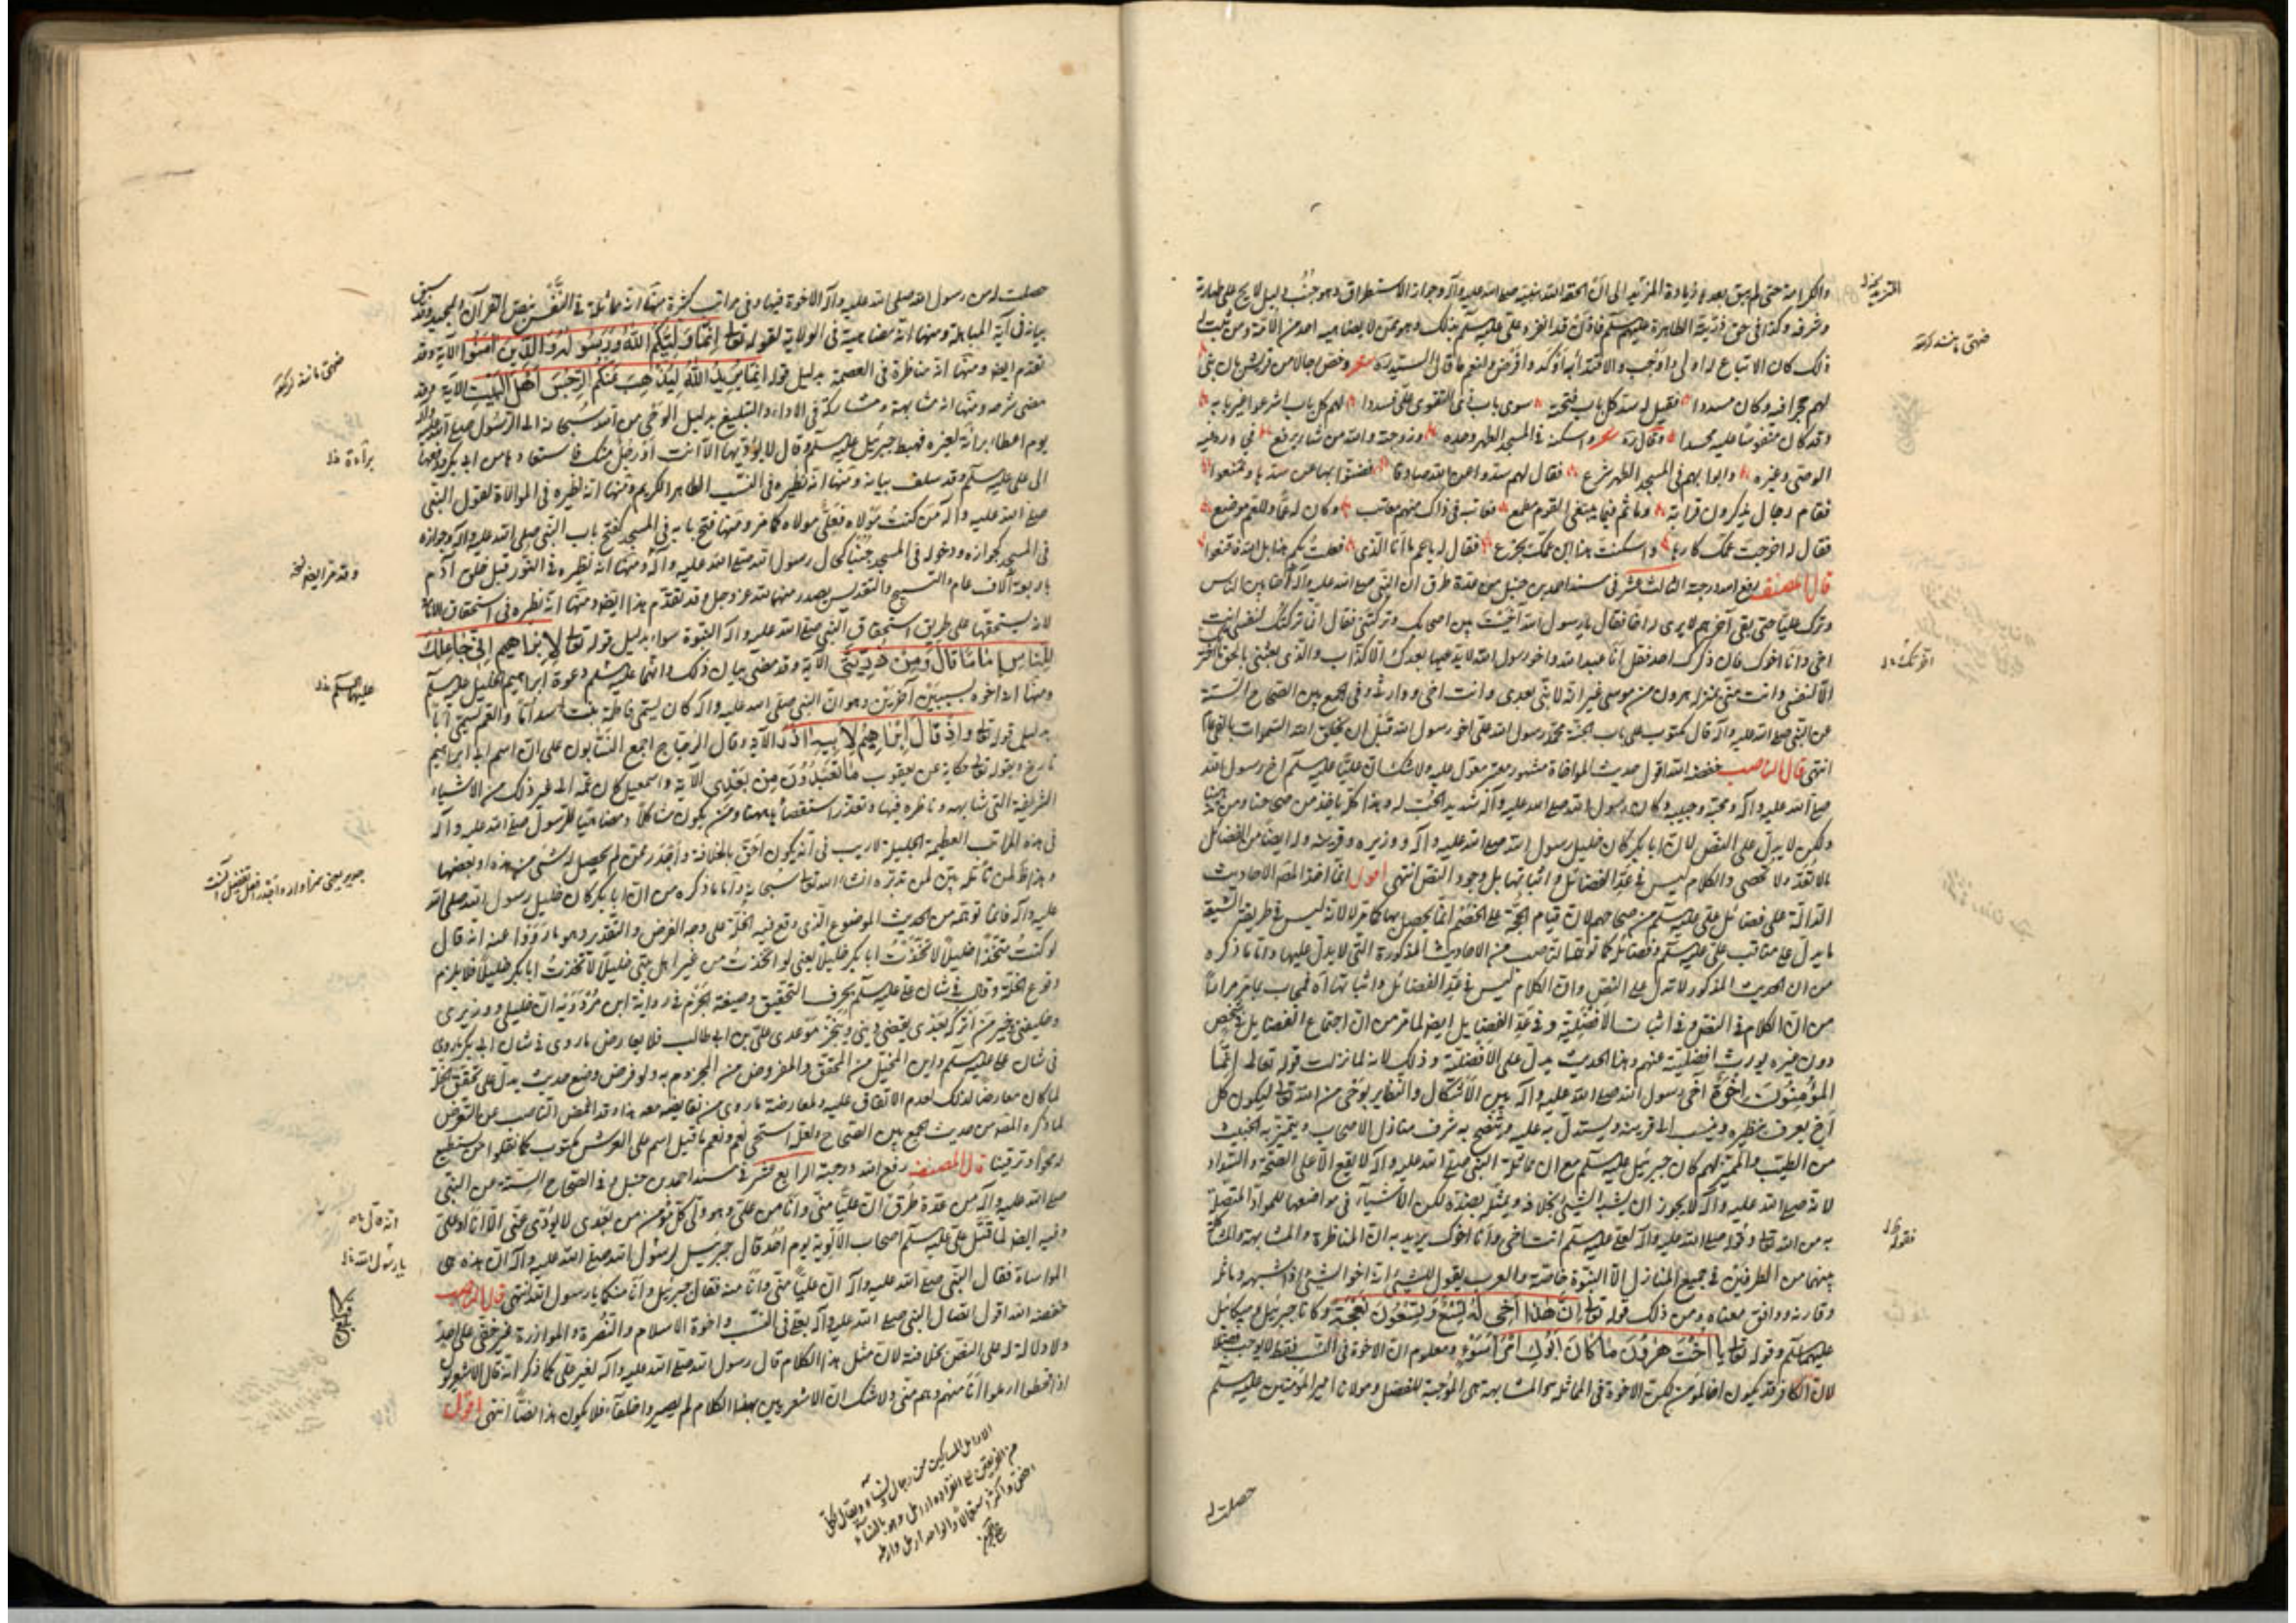 والكرامة حتى لم يبق بعده زيادة
وشرفه وكذا في حق ذريته الطاهرة عليهم السلام
ذلك كان الاتباع له اولى واوجب والاقتداء به
لهم حجرا فيه وكان مسددا فقيل له سد كل باب فتحته سوى باب ذي التقوى علي فسددوا لهم كل باب اشرعوا غير بابه
وقد كان منفوسا عليه محسدا وقال ره شعر واسكنه في المسجد الطهر وحده وزوجته والله من شاء يرفع
الوصي وغيره وابوابهم في المسجد الطهر شرع فقال لهم سدوا عن الله صادقا فضنوا بها عن سدها وتمنعوا
فقام رجال يذكرون قرابة وما ثم فيما يبتغي القوم مطمع فعاتبه في ذاك منهم معاتب وكان له عما وللعم موضع
فقال له اخرجت عمك كارها واسكنت هذا ابن عمك يجزع فقال له يا عم ما انا الذي فعلت بكم هذا بل الله فاقنعوا
قال المصنف رفع الله درجته الثالث عشر في مسند احمد بن حنبل من عدة طرق ان النبي صلى الله عليه وآله آخى بين الناس
وترك عليا حتى بقي آخرهم لا يرى له اخا فقال يا رسول الله آخيت بين اصحابك وتركتني فقال انما تركتك لنفسي انت
اخي وانا اخوك فان ذكرك احد فقل انا عبد الله واخو رسول الله لا يدعيها بعدك الا كذاب والذي بعثني بالحق ما اخرتك
الا لنفسي وانت مني بمنزلة هرون من موسى غير انه لا نبي بعدي وانت اخي ووارثي وفي الجمع بين الصحاح الستة
عن النبي صلى الله عليه وآله قال مكتوب على باب الجنة محمد رسول الله علي اخو رسول الله قبل ان يخلق الله السموات بالفي عام
انتهى قال الناصب خفضه الله اقول حديث المواخاة مشهور معتبر معول عليه ولا شك ان عليا عليه السلام اخ رسول الله
صلى الله عليه وآله ومحبه وحبيبه وكان رسول الله صلى الله عليه وآله شديد الحب له وهذا كله يؤخذ من صحاحنا
ولكن لا يدل على النص لان ابا بكر كان خليل رسول الله صلى الله عليه وآله ووزيره وقرينه وله ايضا من الفضائل
ما لا تعد ولا تحصى والكلام ليس في عد الفضائل واثباتها بل وجود النص انتهى اقول انما اخذ المصنف الاحاديث
الدالة على فضائل علي عليه السلام من صحاحهم لان قيام الحجة على الخصم انما يحصل بها كما مر لا لانه ليس في طريق الشيعة
ما يدل على مناقب علي عليه السلام وفضائله كما توهمه الناصب من الاحاديث المذكورة التي لا يدل عليها واما ما ذكره
من ان الحديث المذكور لا تدل على النص وان الكلام ليس في عد الفضائل واثباتها اه فمجاب بما مر مرارا
من ان الكلام في النص وفي اثبات الافضلية وفي عد الفضايل ايضا لما مر من ان اجتماع الفضايل في شخص
دون غيره يورث افضليته عنهم وهذا الحديث يدل على الافضلية وذلك لانه لما نزلت قوله تعالى انما
المؤمنون اخوة آخى رسول الله صلى الله عليه وآله بين الاشكال والنظاير بوحي من الله تعالى ليكون كل
اخ يعرف بنظيره وينسب الى قرينه ويستدل به عليه وتتضح به شرف منازل الاصحاب ويتميز به الخبيث
من الطيب والمميز لهم كان جبرئيل عليه السلام مع ان مماثلة النبي صلى الله عليه وآله لا يقع الا على الصحة والسداد
لانه صلى الله عليه وآله لا يجوز ان يشبه الشيء بخلافه ويمثله بضده لكن الاشياء في مواضعها للمواد المتصلة
به من الله تعالى وقوله صلى الله عليه وآله لعلي عليه السلام انت اخي وانا اخوك يريد به ان المناظرة والمشابهة والمشاكلة
بينهما من الطرفين في جميع المنازل الا النبوة خاصة والعرب يقول للشيء انه اخو الشيء اذا اشبهه وماثله
وقارنه ووافق معناه ومن ذلك قوله تعالى ان هذا اخي له تسع وتسعون نعجة وكانا جبرئيل وميكائيل
عليهما السلام وقوله تعالى يا اخت هرون ما كان ابوك امرأ سوء ومعلوم ان الاخوة في النسب فقط لا يوجب
لان الكافر قد يكون اخا لمؤمن لكن الاخوة في المماثلة والمشابهة هي الموجبة للفضل ومولانا امير المؤمنين عليه السلام
حصلت له
حصلت له من رسول الله صلى الله عليه وآله الاخوة فيها وفي مراتب كثيرة منها انه مماثلة في النفس بنص القرآن المجيد وقد سبق
بيانه في آية المباهلة ومنها انه مضاهيه في الولاية لقوله تعالى انما وليكم الله ورسوله والذين امنوا الآية وقد
تقدم ايضا ومنها انه مناظره في العصمة بدليل قوله انما يريد الله ليذهب عنكم الرجس اهل البيت الآية وقد
مضى شرحه ومنها انه مشابهه ومشاركه في الاداء والتبليغ بدليل الوحي من الله سبحانه الى الرسول صلى الله عليه وآله
يوم اعطاء براءة لغيره فهبط جبرئيل عليه السلام وقال لا يؤديها الا انت او رجل منك فاستعادها من ابي بكر ودفعها
الى علي عليه السلام وقد سلف بيانه ومنها انه نظيره في النسب الطاهر الكريم ومنها انه نظيره في الموالاة لقول النبي
صلى الله عليه وآله من كنت مولاه فعلي مولاه كما مر ومنها فتح بابه في المسجد كفتح باب النبي صلى الله عليه وآله وجوازه
في المسجد كجوازه ودخوله في المسجد جنبا كحال رسول الله صلى الله عليه وآله ومنها انه نظيره في النور قبل خلق آدم
باربعة آلاف عام والتسبيح والتقديس يصدر منهما لله عز وجل وقد تقدم هذا ايضا ومنها انه نظيره في استحقاق الامامة
لانه يستحقها على طريق استحقاق النبي صلى الله عليه وآله النبوة سواء بدليل قوله تعالى لابراهيم اني جاعلك
للناس اماما قال ومن ذريتي الآية وقد مضى بيان ذلك وانهما عليهما السلام دعوة ابراهيم الخليل عليه السلام
ومنها انه اخوه بسببين آخرين وهو ان النبي صلى الله عليه وآله كان يسمي فاطمة بنت اسد اما والعم يسمى ابا
بدليل قوله تعالى واذ قال ابراهيم لابيه آزر الآية وقال الزجاج اجمع النسابون على ان اسم ابي ابراهيم
تارخ وبقوله تعالى حكاية عن يعقوب ما تعبدون من بعدي الآية واسمعيل كان عمه الى غير ذلك من الاشياء
الشريفة التي شابهه وناظره فيها وتعذر استقصاؤها ههنا ومن يكون مشاكلا ومضاهيا للرسول صلى الله عليه وآله
في هذه المراتب العظيمة الجليلة لا ريب في انه يكون احق بالخلافة واجدر ممن لم يحصل له شيء من هذه او بعضها
وهذا لمن تأمله بين لمن تدبره انشاء الله تعالى سبحانه واما ما ذكره من ان ابا بكر كان خليل رسول الله صلى الله
عليه وآله فانما توهمه من الحديث الموضوع الذي وقع فيه الخلة على وجه الفرض والتقدير وهو ما رووا عنه انه قال
لو كنت متخذا خليلا لاتخذت ابا بكر خليلا يعني لو اتخذت من غير اهل بيتي خليلا لاتخذت ابا بكر خليلا فلا يلزم
وقوع الخلة وقال في شان علي عليه السلام بحرف التحقيق وصيغة الجزم في رواية ابن مردويه ان خليلي ووزيري
وخليفتي وخير من اتركه بعدي يقضي ديني وينجز موعدي علي بن ابي طالب فلا يعارض ما روي في شان ابي بكر ما روي
في شان علي عليه السلام واين المخيل من المحقق والمفروض من المجزوم به ولو فرض وضع حديث يدل على تحقق الخلة
لما كان معارضا لذلك لعدم الاتفاق عليه ولمعارضة ما روي من نقايضه معه هذا وقد اغمض الناصب عن التعرض
لما ذكره المصنف من حديث الجمع بين الصحاح ولعله استحى نعم ونعم ما قيل اسم على العرش مكتوب كما نقلوا من يستطيع
له محوا وترقينا قال المصنف رفع الله درجته الرابع عشر في مسند احمد بن حنبل وفي الصحاح الستة عن النبي
صلى الله عليه وآله من عدة طرق ان عليا مني وانا من علي وهو ولي كل مؤمن من بعدي لا يؤدي عني الا انا او علي
وفيه ايضا لما قتل علي عليه السلام اصحاب الالوية يوم احد قال جبرئيل لرسول الله صلى الله عليه وآله ان هذه هي
المواساة فقال النبي صلى الله عليه وآله ان عليا مني وانا منه فقال جبرئيل وانا منكما يا رسول الله انتهى قال الناصب
خفضه الله اقول اتصال النبي صلى الله عليه وآله بعلي في النسب واخوة الاسلام والنصرة والموازرة غير خفي على احد
ولا دلالة له على النص بخلافته لان مثل هذا الكلام قال رسول الله صلى الله عليه وآله لغير علي كما ذكر انه قال الاشعريون
اذا اقحطوا ارملوا انا منهم وهم مني ولا شك ان الاشعريين بهذا الكلام لم يصيروا خلفاء فلا يكون هذا نصا انتهى اقول
براءة
وقد مر ايضا
عليهما السلام
يا رسول الله
الارامل المساكين من رجال ونساء ويقال لكل